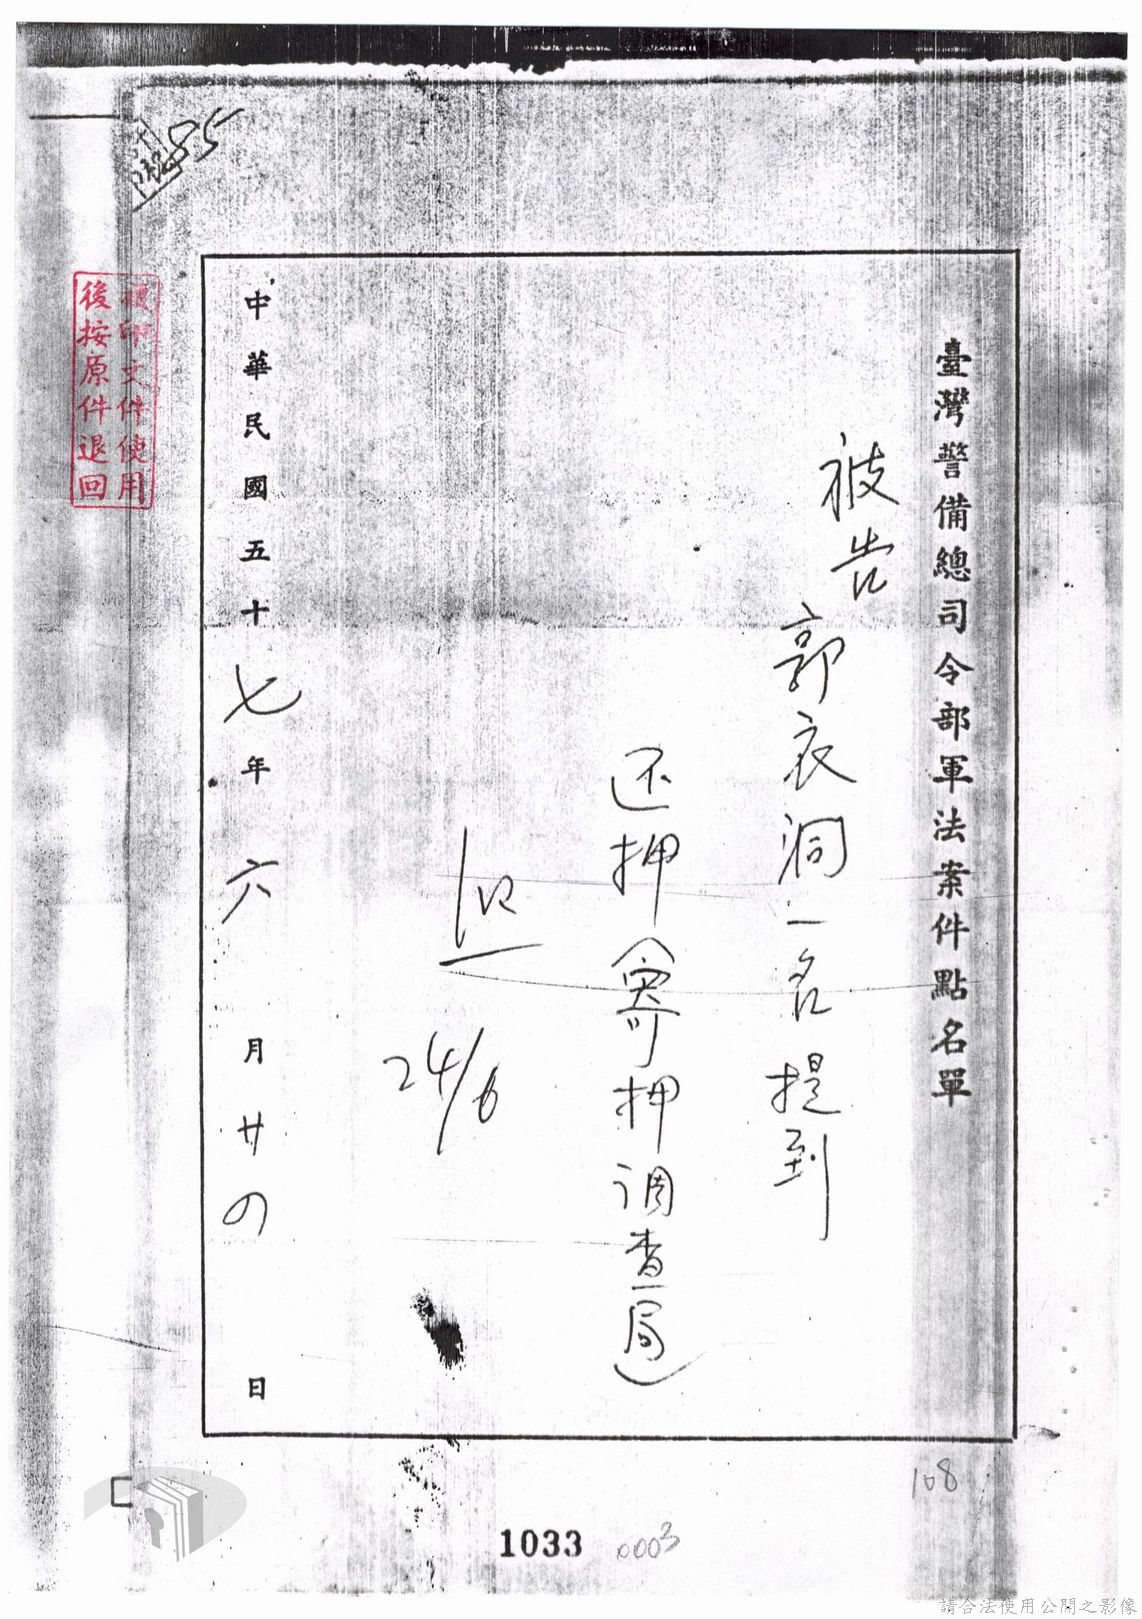 臺灣警備總司令部軍法案件點名單
被告
郭衣洞一名提到
还押(寄押调查局)
24/6
中華民國五十七年六月廿四日
複印文件使用
後按原件退回
108
1033
0003
請合法使用公開之影像